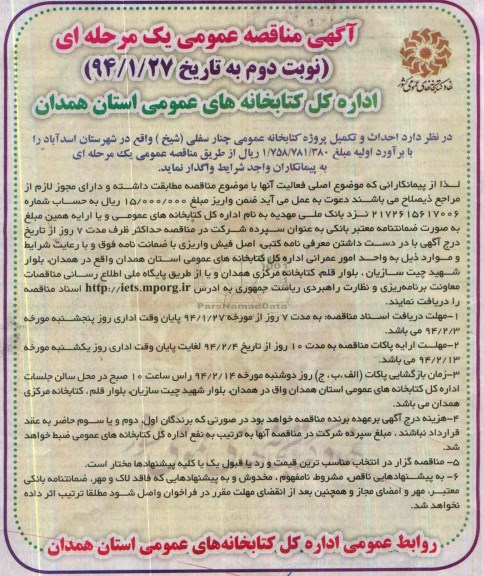 آگهی مناقصه عمومی یک مرحله ای
(نوبت دوم به تاریخ ۹۴/۱/۲۷)
اداره کل کتابخانه های عمومی استان همدان
نهاد کتابخانه‌های عمومی کشور
در نظر دارد احداث و تکمیل پروژه کتابخانه عمومی چنار سفلی (شیخ ) واقع در شهرستان اسدآباد را
با برآورد اولیه مبلغ ۱/۷۵۸/۷۸۱/۳۸۰ ریال از طریق مناقصه عمومی یک مرحله ای
به پیمانکاران واجد شرایط واگذار نماید.
لـذا از پیمانکارانی که موضوع اصلی فعالیت آنها با موضوع مناقصه مطابقت داشته و دارای مجوز لازم از
مراجع ذیصلاح می باشند دعوت به عمل می آید ضمن واریز مبلغ ۱۵/۰۰۰/۰۰۰ ریال به حساب شماره
۲۱۷۲۶۱۵۶۱۷۰۰۶ نـزد بانک ملـی مهدیه به نام اداره کل کتابخانه های عمومـی و یا ارایه همین مبلغ
به صورت ضمانتنامه معتبر بانکی به عنوان سپرده شرکت در مناقصه حداکثر ظرف مدت ۷ روز از تاریخ
درج آگهی با در دست داشتن معرفی نامه کتبی، اصل فیش واریزی با ضمانت نامه فوق و با رعایت شرایط
و موارد ذیل به واحد امور عمرانی اداره کل کتابخانه های عمومی استان همدان واقع در همدان، بلوار
شهید چیت سازیان ، بلوار قلم، کتابخانه مرکزی همدان و یا از طریق پایگاه ملی اطلاع رسانی مناقصات
معاونت برنامه‌ریزی و نظارت راهبردی ریاست جمهوری به آدرس http://iets.mporg.ir اسناد مناقصه
را دریافت نمایند.
ParsNamadData
۱-مهلت دریافت اسناد مناقصه: به مدت ۷ روز از مورخه ۹۴/۱/۲۷ پایان وقت اداری روز پنجشنبه مورخه
۹۴/۲/۳ می باشد.
۲-مهلـت ارایه پاکات مناقصه به مدت ۱۰ روز از تاریخ ۹۴/۲/۴ لغایت پایان وقت اداری روز یکشنبه مورخه
۹۴/۲/۱۳ می باشد.
۳-زمان بازگشایی پاکات (الف، ب، ج) روز دوشنبه مورخه ۹۴/۲/۱۴ راس ساعت ۱۰ صبح در محل سالن جلسات
اداره کل کتابخانه های عمومی استان همدان واق در همدان، بلوار شهید چیت سازیان، بلوار قلم ، کتابخانه مرکزی
همدان می باشد.
۴-هزینه درج آگهی برعهده برنده مناقصه خواهد بود در صورتی که برندگان اول، دوم و یا سوم حاضر به عقد
قرارداد نباشند ، مبلغ سپرده شرکت در مناقصه آنها به ترتیب به نفع اداره کل کتابخانه های عمومی ضبط خواهد
شد.
۵- مناقصه گزار در انتخاب مناسب ترین قیمت و رد یا قبول یک یا کلیه پیشنهادها مختار است.
۶- به پیشنهادهایی ناقص، مشروط نامفهوم ، مخدوش و به پیشنهادهایی که فاقد لاک و مهر، ضمانتنامه بانکی
معتبـر، مهر و امضای مجاز و همچنین بعد از انقضای مهلت مقرر در فراخوان واصل شـود مطلقا ترتیب اثر داده
نخواهد شد.
روابط عمومی اداره کل کتابخانه‌های عمومی استان همدان